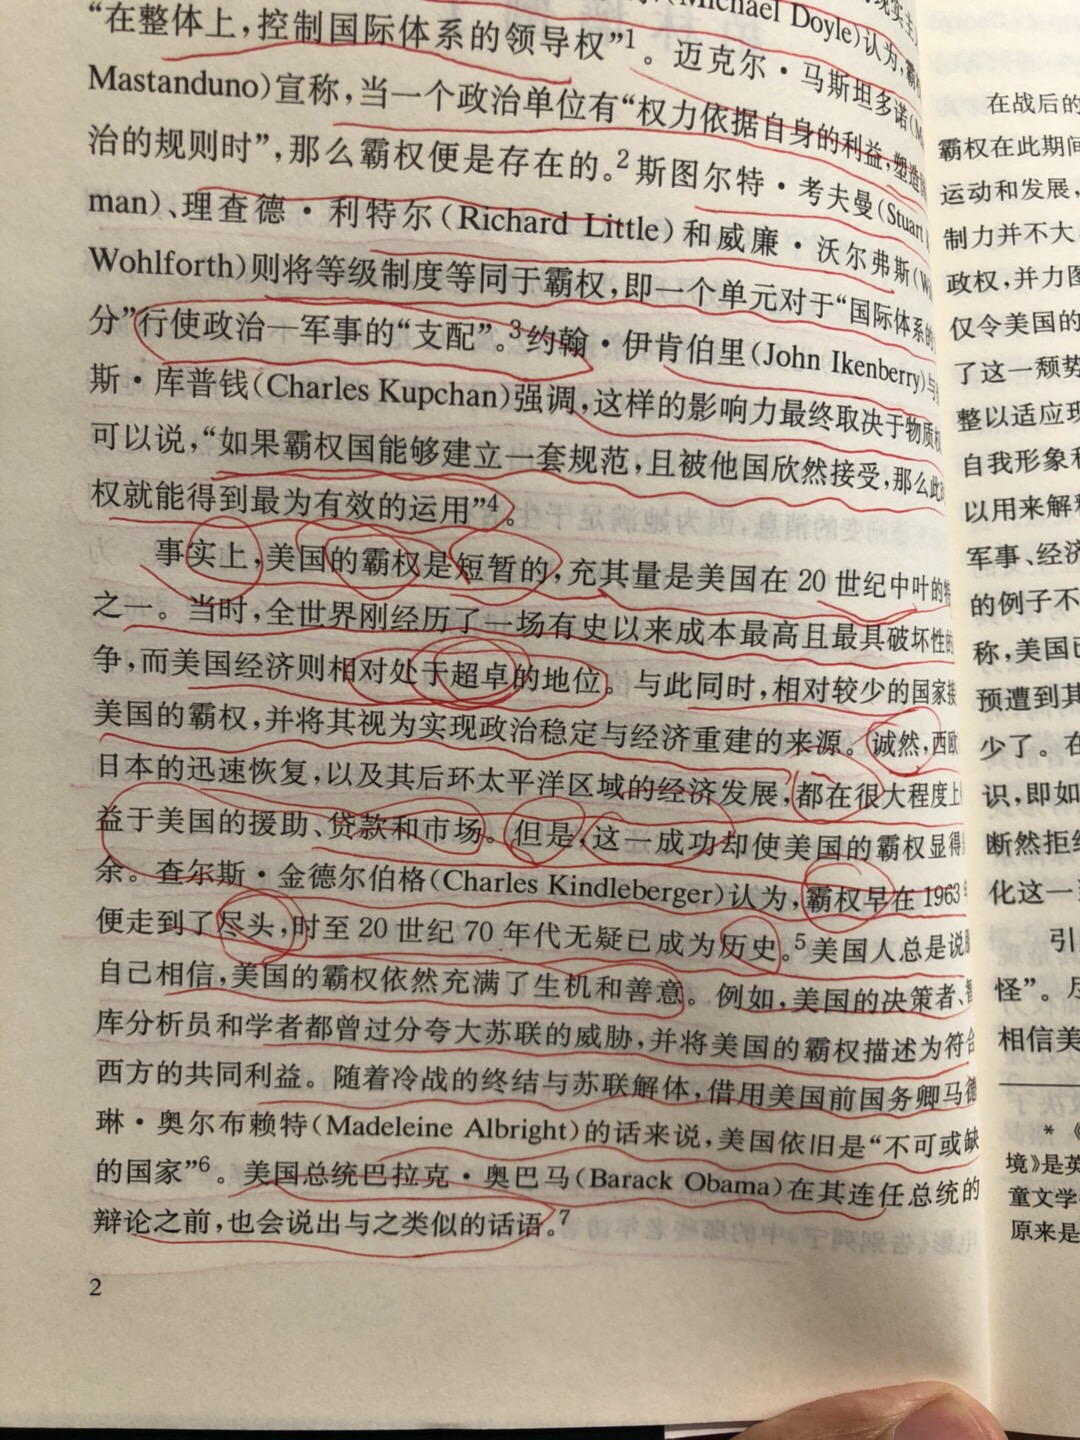 (Michael Doyle)认为,霸
“在整体上,控制国际体系的领导权”1。迈克尔·马斯坦多诺(M
Mastanduno)宣称,当一个政治单位有“权力依据自身的利益,塑造
治的规则时”,那么霸权便是存在的。2斯图尔特·考夫曼(Stuart
man)、理查德·利特尔(Richard Little)和威廉·沃尔弗斯(W
Wohlforth)则将等级制度等同于霸权,即一个单元对于“国际体系的
分”行使政治—军事的“支配”。3约翰·伊肯伯里(John Ikenberry)与
斯·库普钱(Charles Kupchan)强调,这样的影响力最终取决于物质
可以说,“如果霸权国能够建立一套规范,且被他国欣然接受,那么此
权就能得到最为有效的运用”4。
事实上,美国的霸权是短暂的,充其量是美国在20世纪中叶的特
之一。当时,全世界刚经历了一场有史以来成本最高且最具破坏性的
争,而美国经济则相对处于超卓的地位。与此同时,相对较少的国家接
美国的霸权,并将其视为实现政治稳定与经济重建的来源。诚然,西欧
日本的迅速恢复,以及其后环太平洋区域的经济发展,都在很大程度上
益于美国的援助、贷款和市场。但是,这一成功却使美国的霸权显得
余。查尔斯·金德尔伯格(Charles Kindleberger)认为,霸权早在1963
便走到了尽头,时至20世纪70年代无疑已成为历史。5美国人总是说服
自己相信,美国的霸权依然充满了生机和善意。例如,美国的决策者、智
库分析员和学者都曾过分夸大苏联的威胁,并将美国的霸权描述为符合
西方的共同利益。随着冷战的终结与苏联解体,借用美国前国务卿马德
琳·奥尔布赖特(Madeleine Albright)的话来说,美国依旧是“不可或缺
的国家”6。美国总统巴拉克·奥巴马(Barack Obama)在其连任总统的
辩论之前,也会说出与之类似的话语。7
2
在战后的
霸权在此期间
运动和发展,
制力并不大
政权,并力图
仅令美国的
了这一颓势
整以适应现
自我形象和
以用来解释
军事、经济
的例子不
称,美国已
预遭到其
少了。在
识,即如
断然拒绝
化这一
引
怪”。尽
相信美
*《
境》是英
童文学
原来是